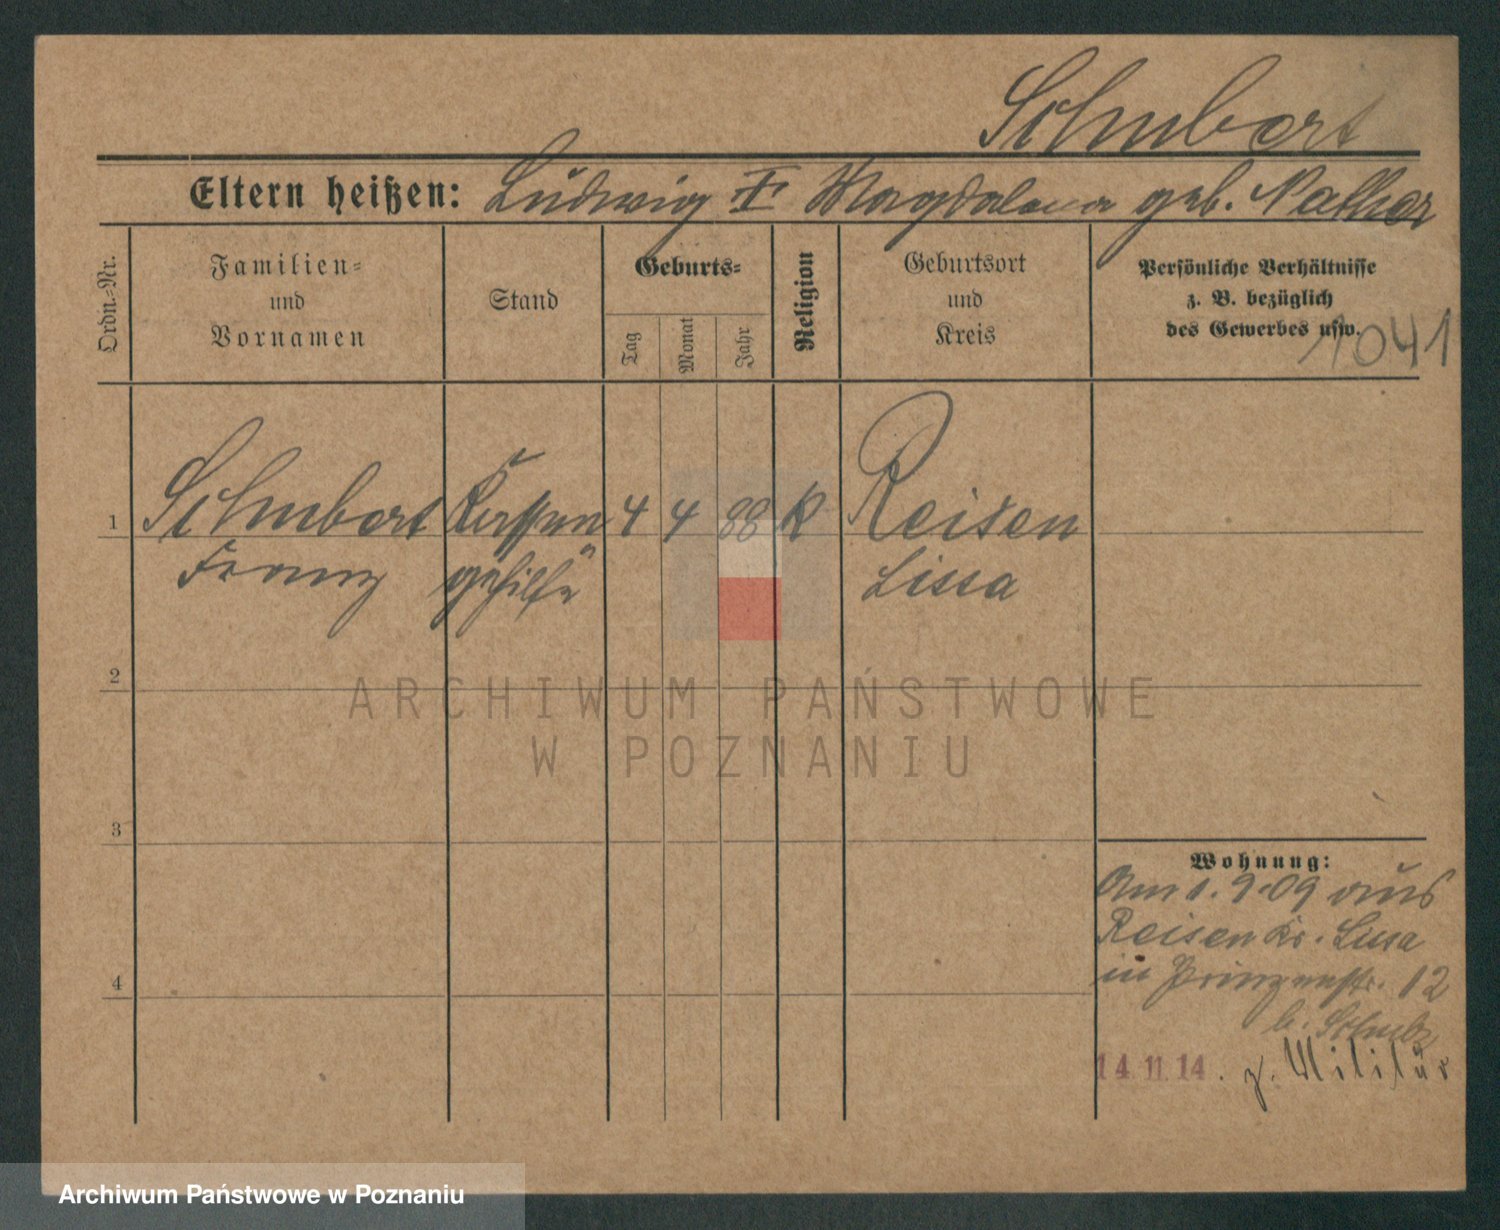 Schubert
Eltern heißen: Ludwig † Magdalena geb. Nather
Ordn.-Nr.
Familien-
und
Vornamen
Stand
Geburts-
Tag
Monat
Jahr
Religion
Geburtsort
und
Kreis
Persönliche Verhältnisse
z. B. bezüglich
des Gewerbes usw.
1041
1 Schubert Kassen 4 4 88 K Reisen
Franz gehilfe Lissa
2
3
4
Wohnung:
Am 1. 9. 09 aus
Reisen Kr. Lissa
in Prinzenstr. 12
b. Schulz
14.11.14. z. Militär
ARCHIWUM PAŃSTWOWE
W POZNANIU
Archiwum Państwowe w Poznaniu